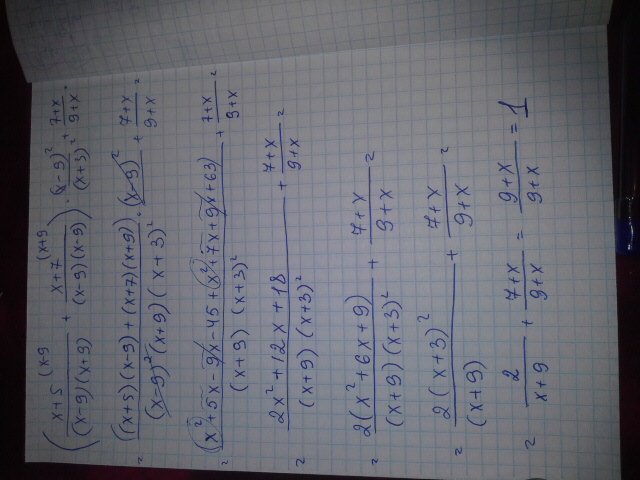 ( (x+5 (x-9)/((x-9)(x+9)) + (x+7 (x+9)/((x-9)(x-9)) ) · (x-9)²/(x+3)² + (7+x)/(9+x) =
= ((x+5)(x-9) + (x+7)(x+9)) · (x-9)²/((x-9)²(x+9)(x+3)²) + (7+x)/(9+x) =
= (x²+5x-9x-45+x²+7x+9x+63)/((x+9)(x+3)²) + (7+x)/(9+x) =
= (2x²+12x+18)/((x+9)(x+3)²) + (7+x)/(9+x) =
= 2(x²+6x+9)/((x+9)(x+3)²) + (7+x)/(9+x) =
= 2(x+3)²/(x+9) + (7+x)/(9+x) =
= 2/(x+9) + (7+x)/(9+x) = (9+x)/(9+x) = 1